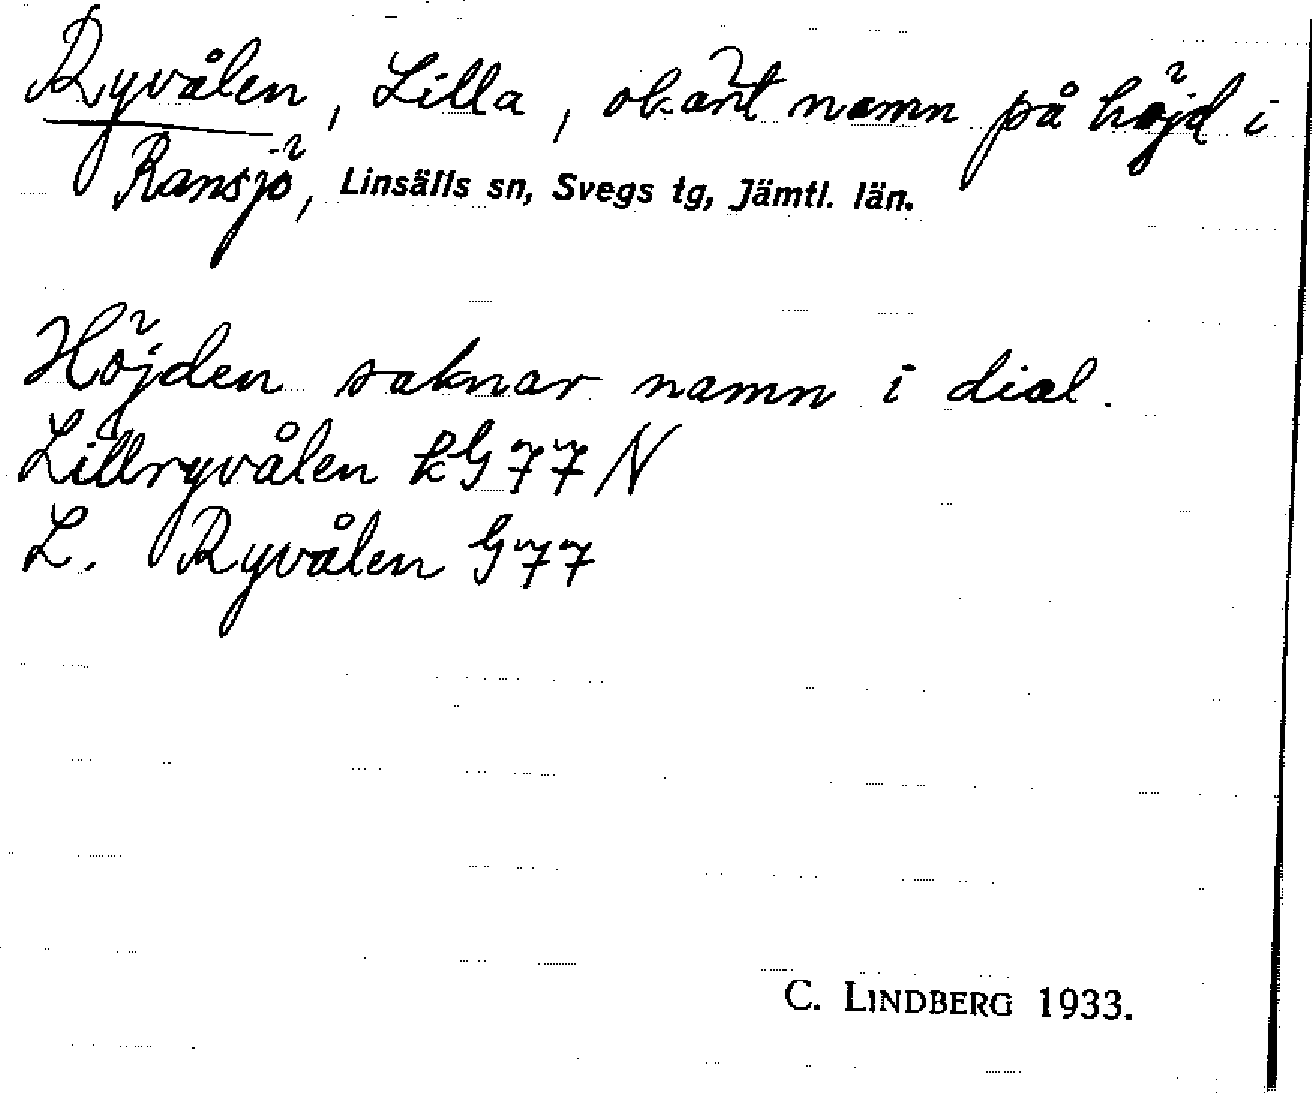 Ryvålen, Lilla, okänt namn på höjd i
Ransjö, Linsälls sn, Svegs tg, Jämtl. län.
Höjden saknar namn i dial.
Lillryvålen kG77N
L. Ryvålen G77
C. LINDBERG 1933.